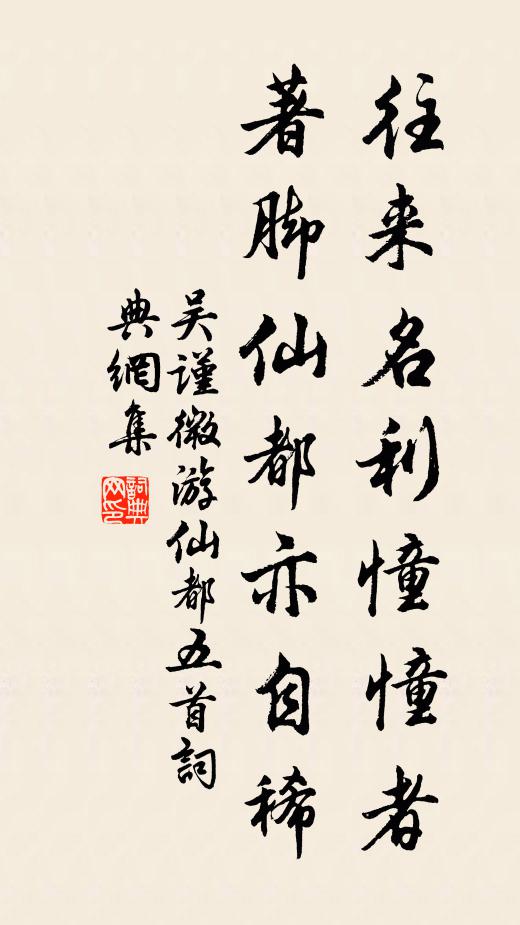 往来名利憧憧者
著脚仙都亦自稀
吴谨微游仙都五首詞
典網集
詞典网印